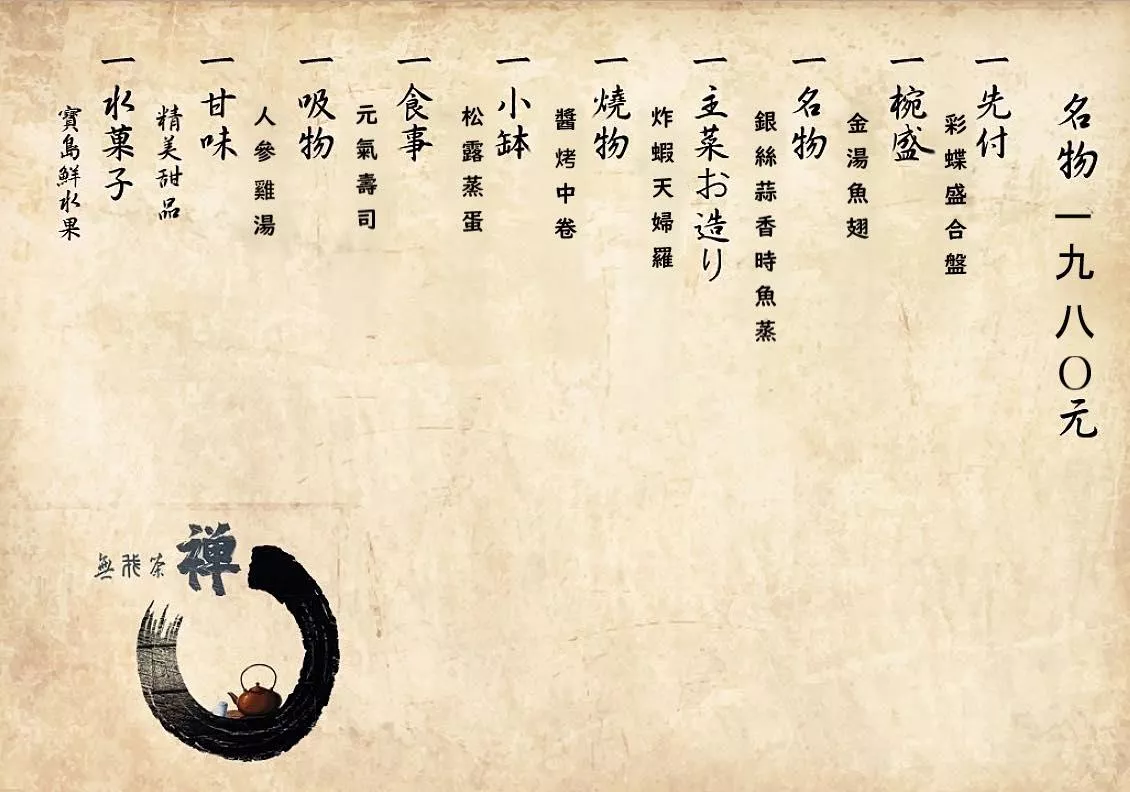 名物 一九八〇元
一先付
彩蝶盛合盤
一椀盛
金湯魚翅
一名物
銀絲蒜香時魚蒸
一主菜お造り
炸蝦天婦羅
一燒物
醬烤中卷
一小缽
松露蒸蛋
一食事
元氣壽司
一吸物
人參雞湯
一甘味
精美甜品
一水菓子
寶島鮮水果
禅